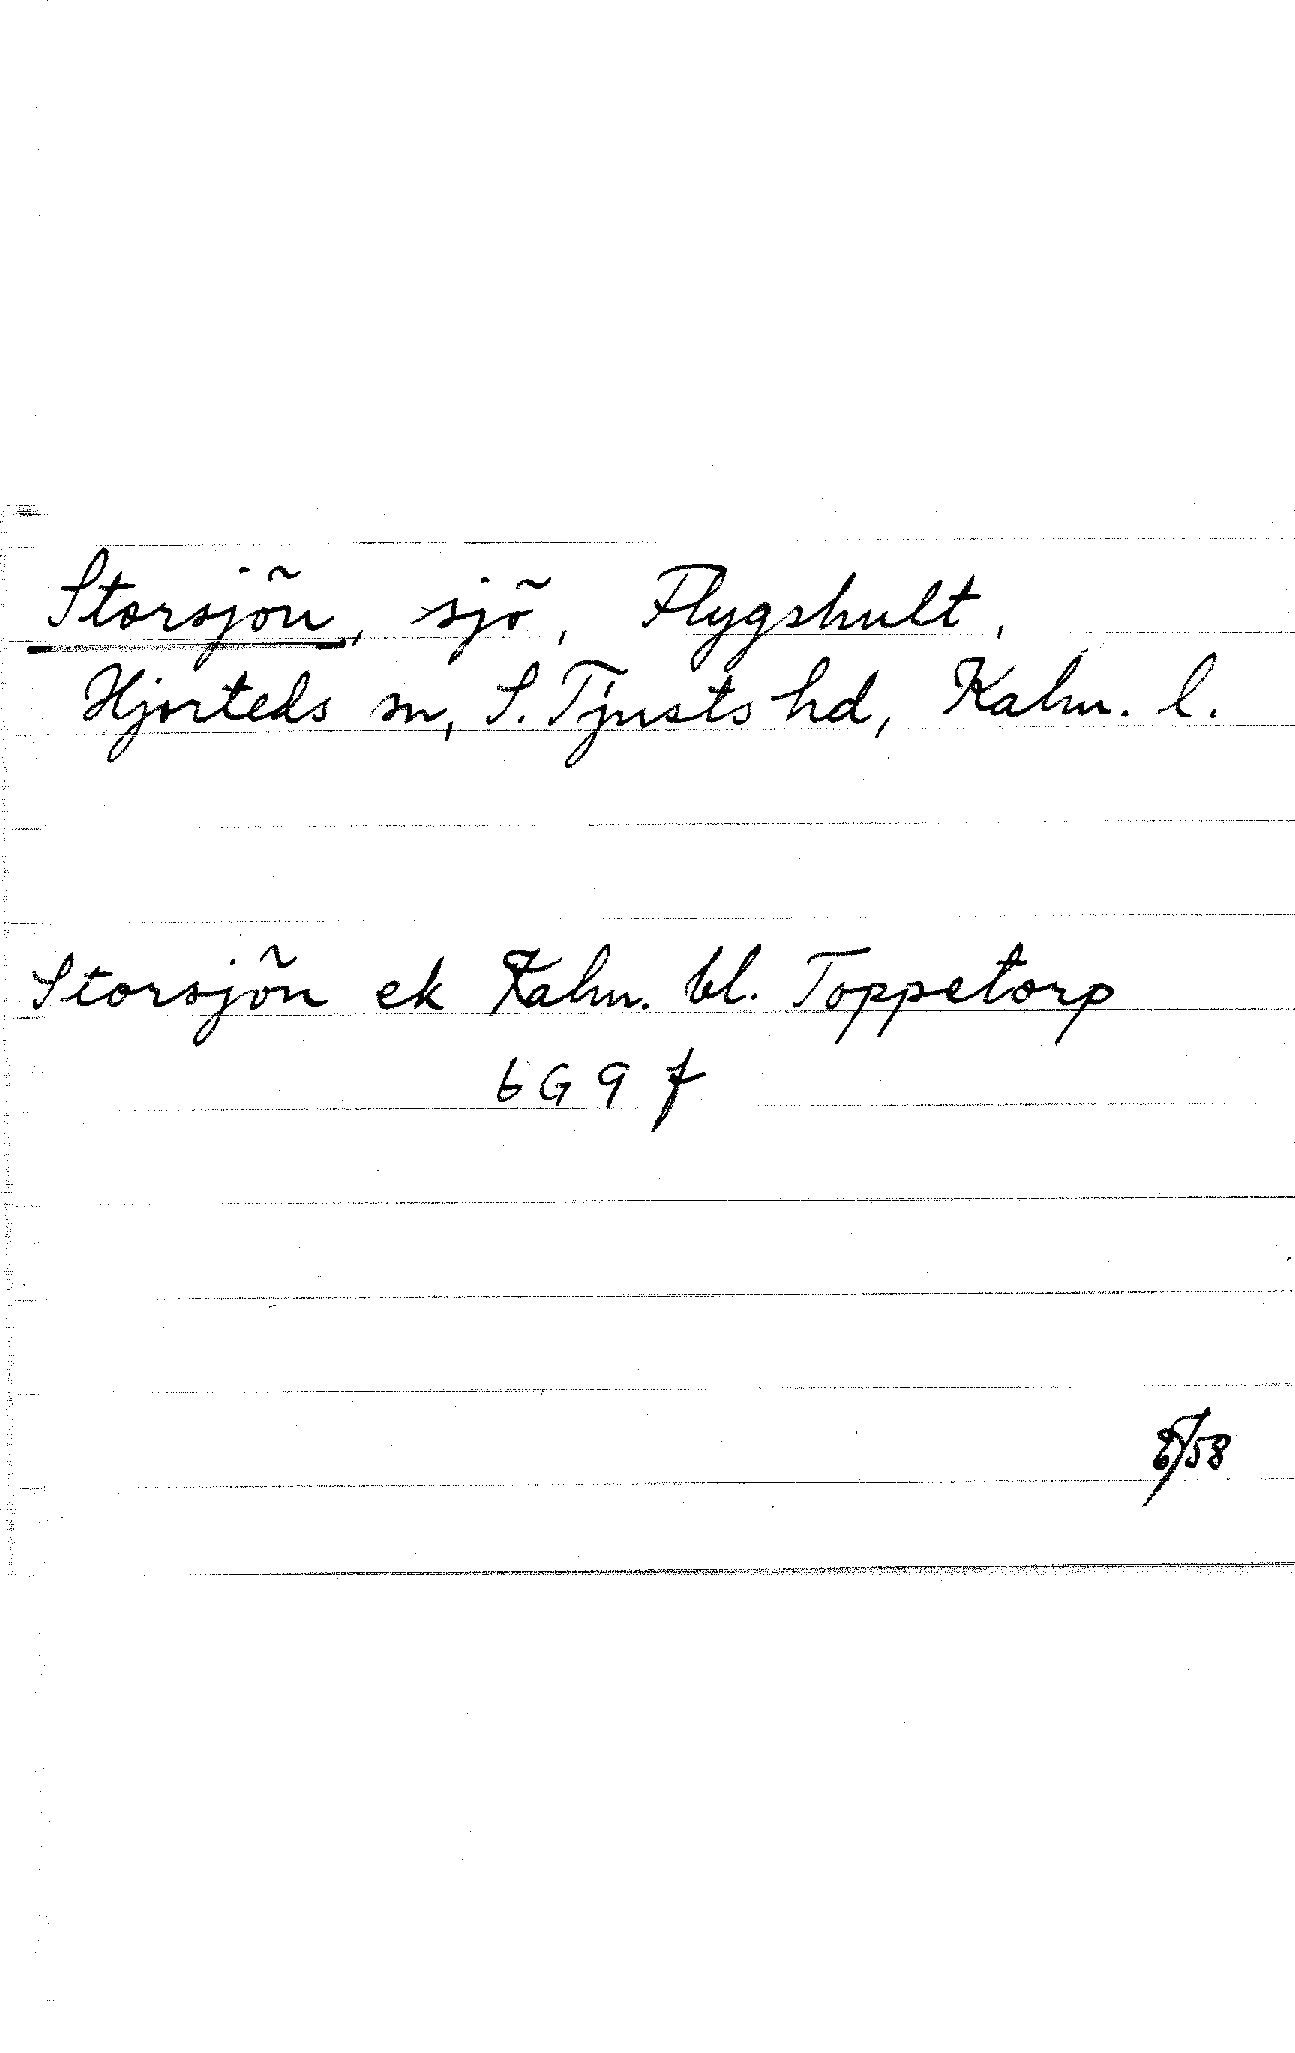 Storsjön, sjö, Flygshult,
Hjorteds sn, S. Tjusts hd, Kalm. l.
Storsjön ek Kalm. bl. Toppetorp
6G 9 f